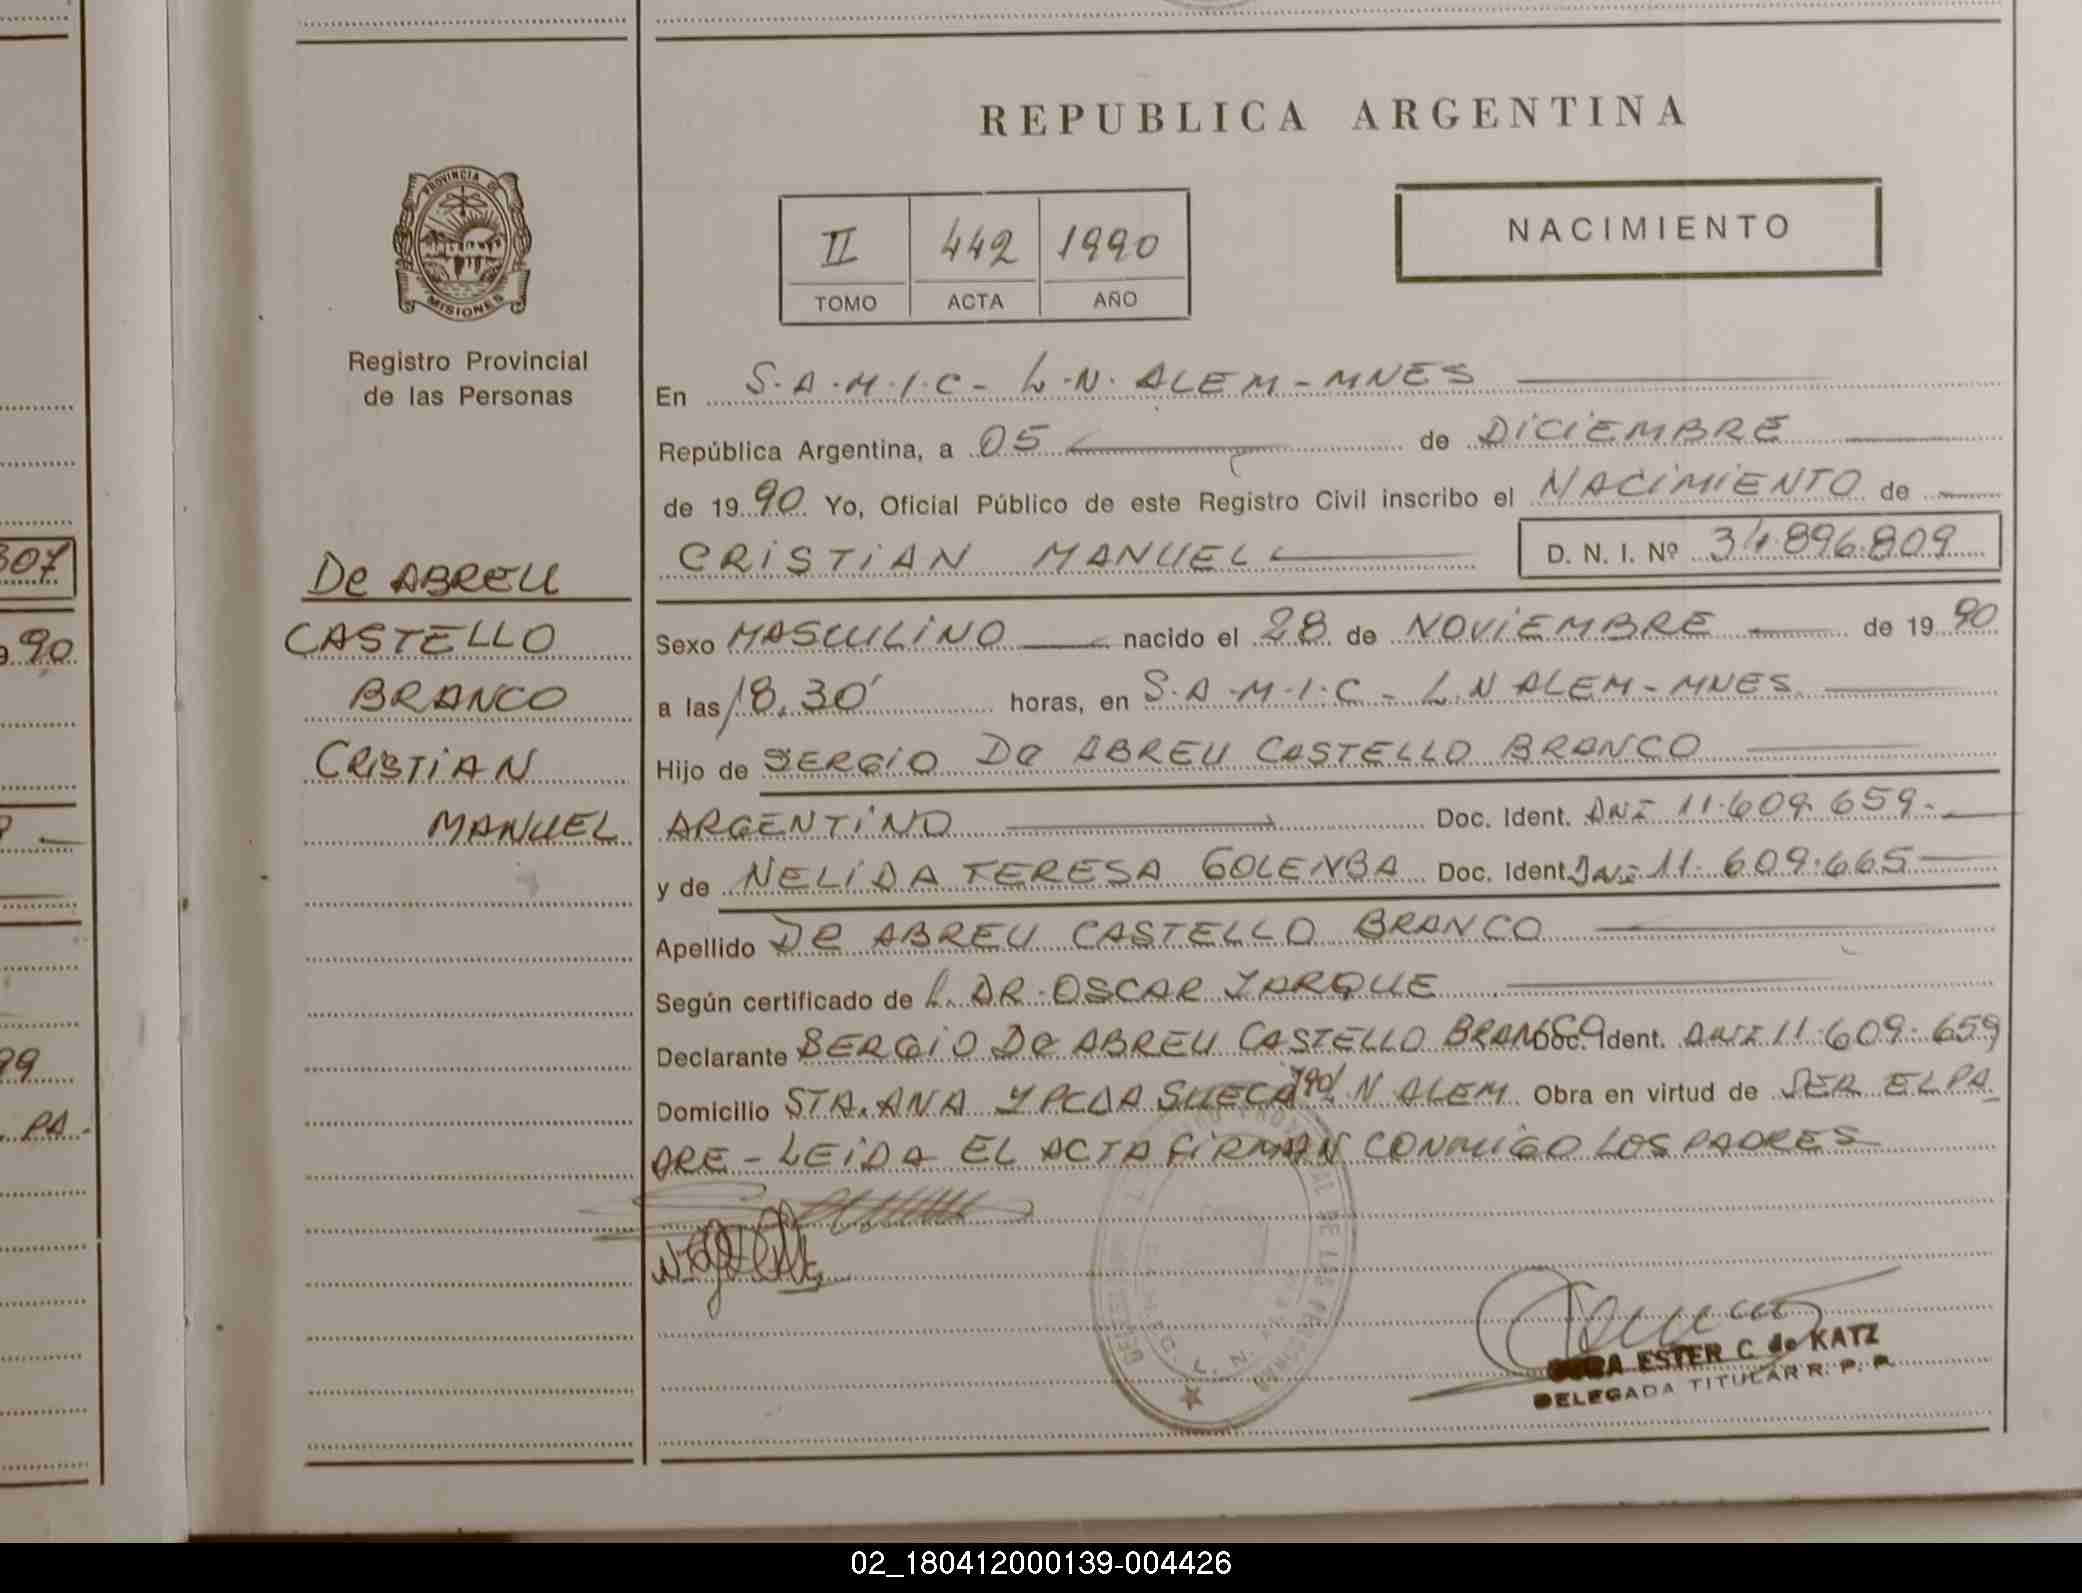 REPUBLICA ARGENTINA
PROVINCIA DE
MISIONES
Registro Provincial
de las Personas
II 442 1990
TOMO ACTA AÑO
NACIMIENTO
En S.A.M.I.C - L.N. ALEM - MNES
República Argentina, a 05 de DICIEMBRE
de 1990 Yo, Oficial Público de este Registro Civil inscribo el NACIMIENTO de
CRISTIAN MANUEL D. N. I. Nº 34.896.809
De ABREU
CASTELLO
BRANCO
CRISTIAN
MANUEL
Sexo MASCULINO nacido el 28 de NOVIEMBRE de 1990
a las 18.30' horas, en S.A.M.I.C - L.N ALEM - MNES
Hijo de SERGIO De ABREU CASTELLO BRANCO
ARGENTINO Doc. Ident. DNI 11.609.659.-
y de NELIDA TERESA GOLEMBA Doc. Ident. DNI 11.609.665
Apellido De ABREU CASTELLO BRANCO
Según certificado de L. DR. OSCAR YARQUE
Declarante SERGIO De ABREU CASTELLO BRANCO Doc. Ident. DNI 11.609.659
Domicilio STA. ANA Y PCDA SUECA N ALEM Obra en virtud de SER EL PA
DRE - LEIDA EL ACTA FIRMAN CONMIGO LOS PADRES
ESTER C. de KATZ
DELEGADA TITULAR R. P. P.
307
90
99
PA.
02_180412000139-004426